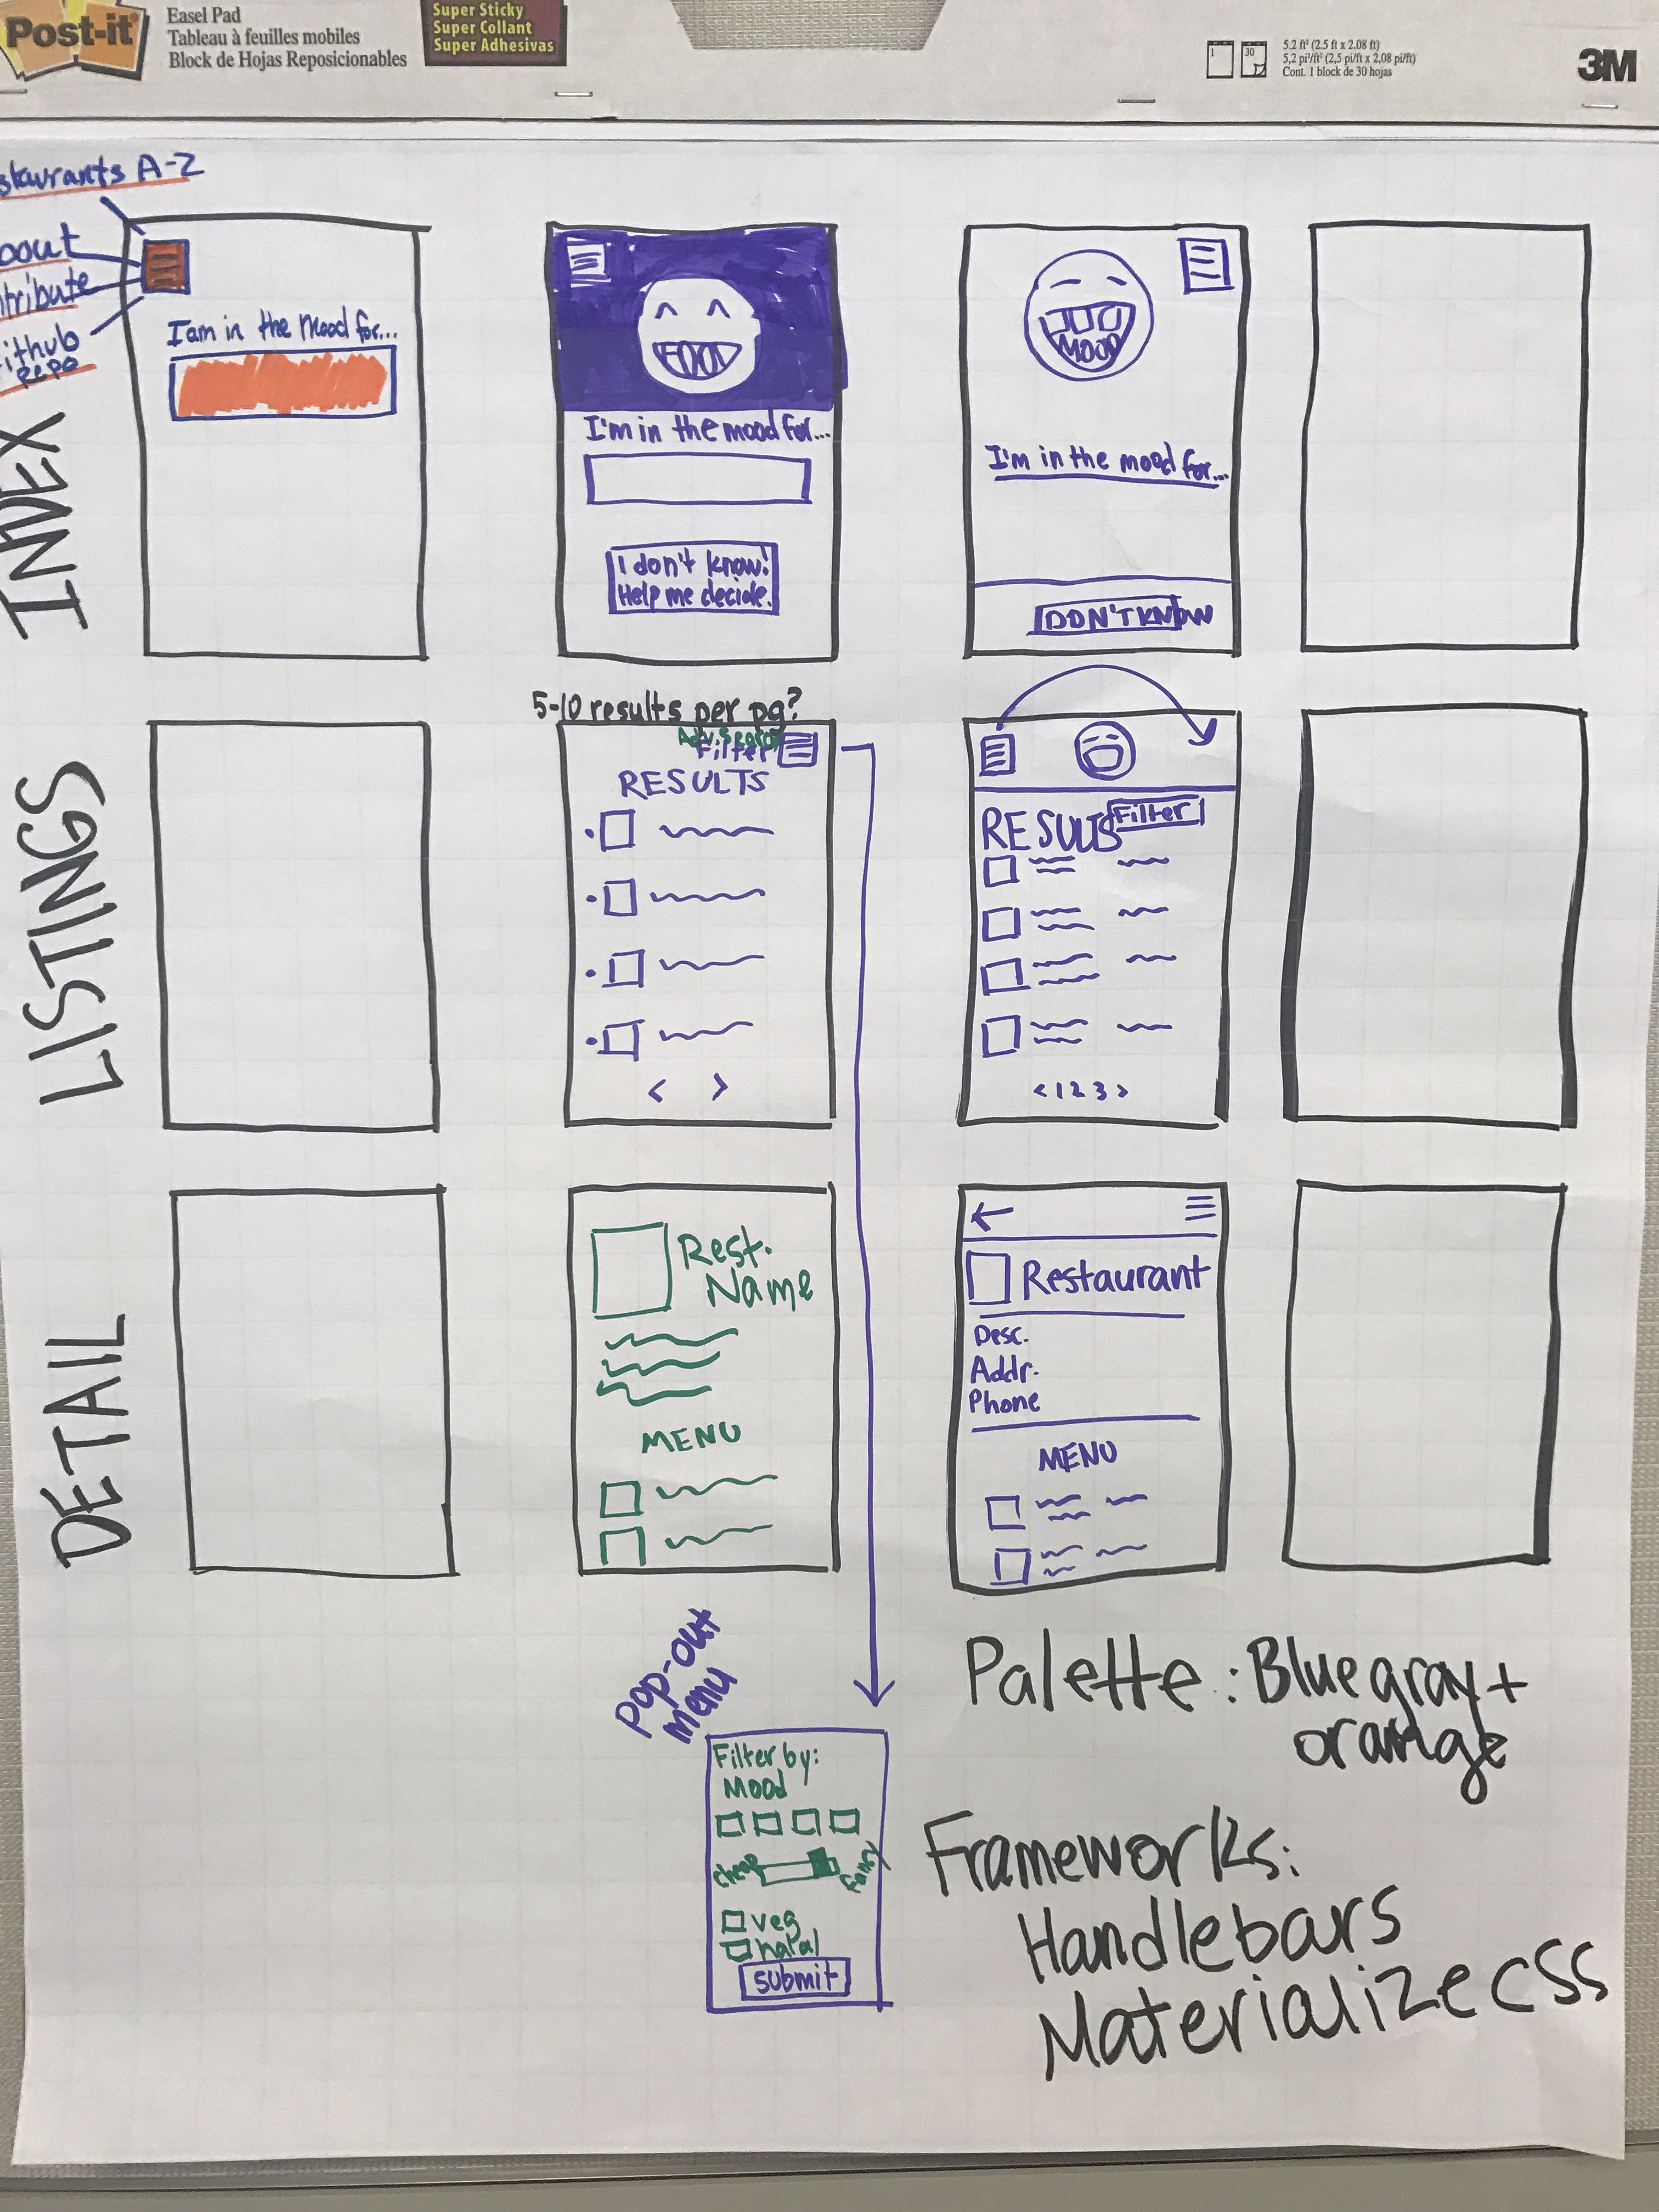 Post-it
Easel Pad
Tableau à feuilles mobiles
Block de Hojas Reposicionables
Super Sticky
Super Collant
Super Adhesivas
1
30
5,2 ft² (2.5 ft x 2.08 ft)
5,2 pi²/ft² (2,5 pi/ft x 2,08 pi/ft)
Cont. 1 block de 30 hojas
3M
staurants A-Z
bout
ntribute
ithub
Repo
INDEX
I am in the Mood for...
FOOD
I'm in the mood for...
I don't know!
Help me decide.
MOOD
I'm in the mood for...
DON'T KNOW
LISTINGS
5-10 results per pg?
Adv. Search
Filter
RESULTS
< >
Filter
RESULTS
< 1 2 3 >
DETAIL
Rest.
Name
MENU
Restaurant
Desc.
Addr.
Phone
MENU
Pop-out
menu
Filter by:
Mood
cheap
fancy
veg
halal
submit
Palette: Blue gray +
orange
Frameworks:
Handlebars
Materialize CSS